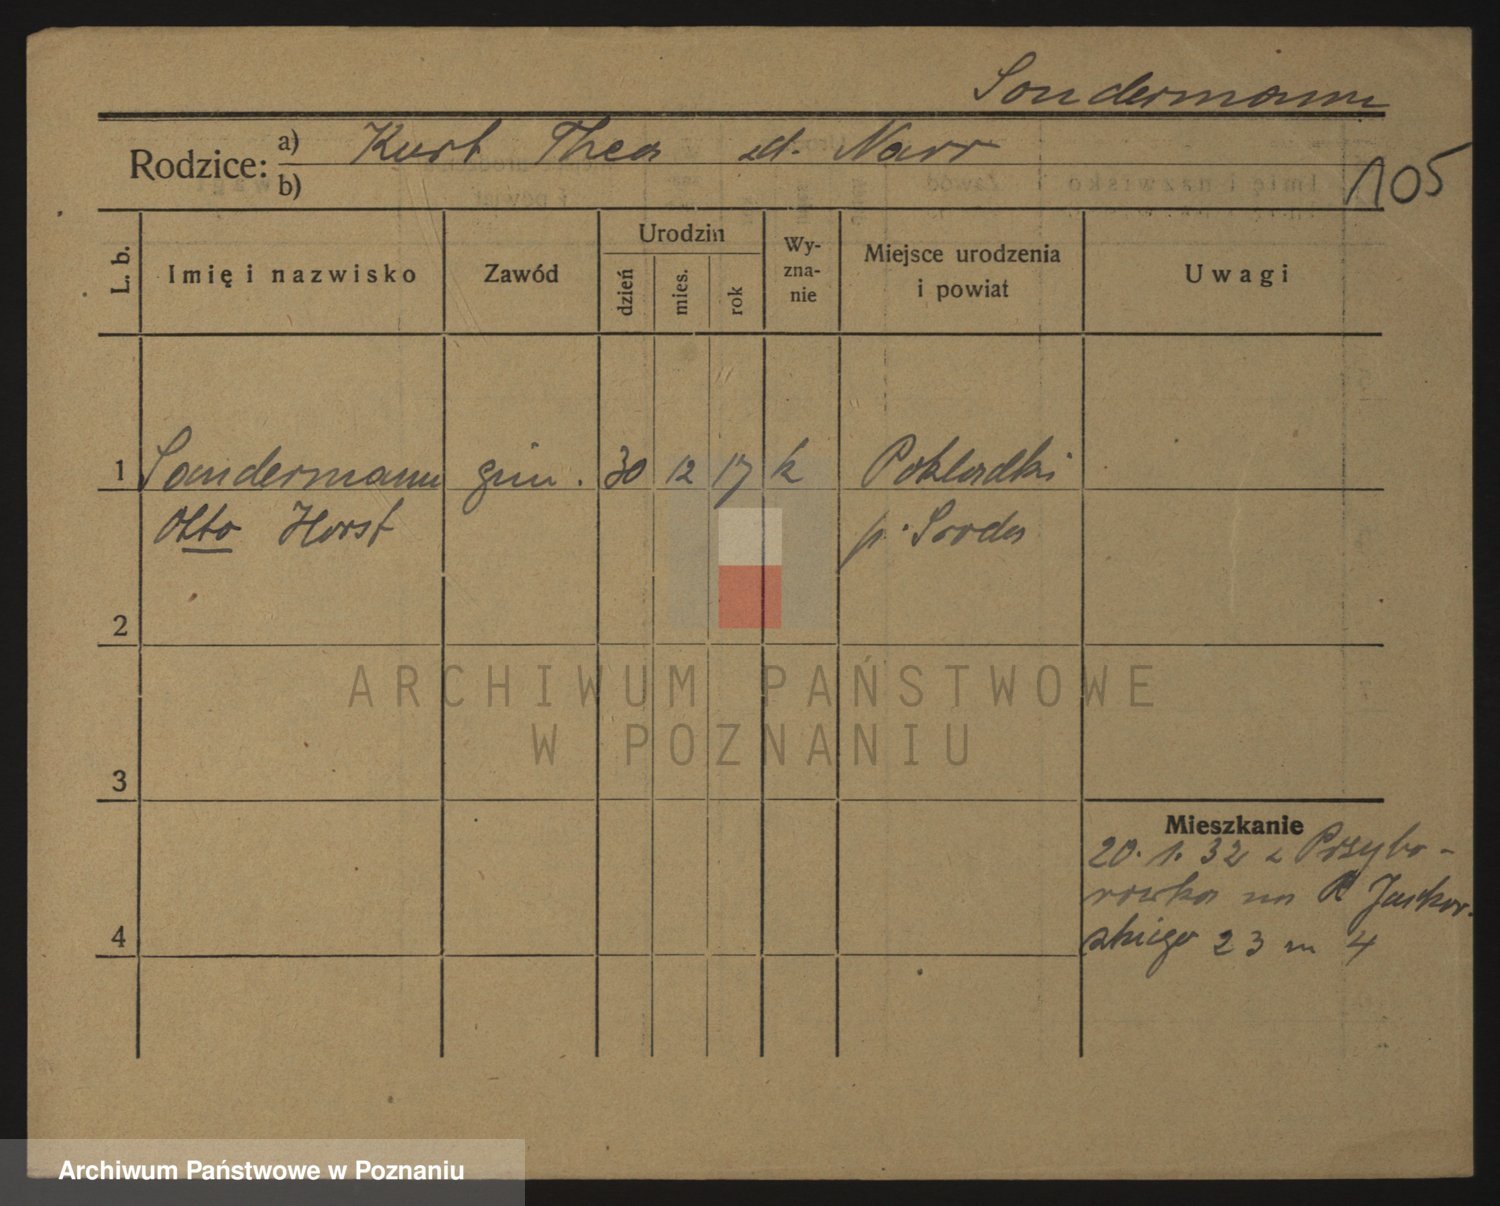 Sondermann
Rodzice: a) Kurt Thea zd. Narr
b)
105
L. b.
Imię i nazwisko
Zawód
Urodzin
dzień
mies.
rok
Wy-
zna-
nie
Miejsce urodzenia
i powiat
Uwagi
1 Sondermann gim. 30 12 17 k Pokladki
Otto Horst p. Sroda
2
3
4
Mieszkanie
20. 1. 32 z Przybo-
rowka na
skiego 23 m 4
ARCHIWUM PAŃSTWOWE
W POZNANIU
Archiwum Państwowe w Poznaniu